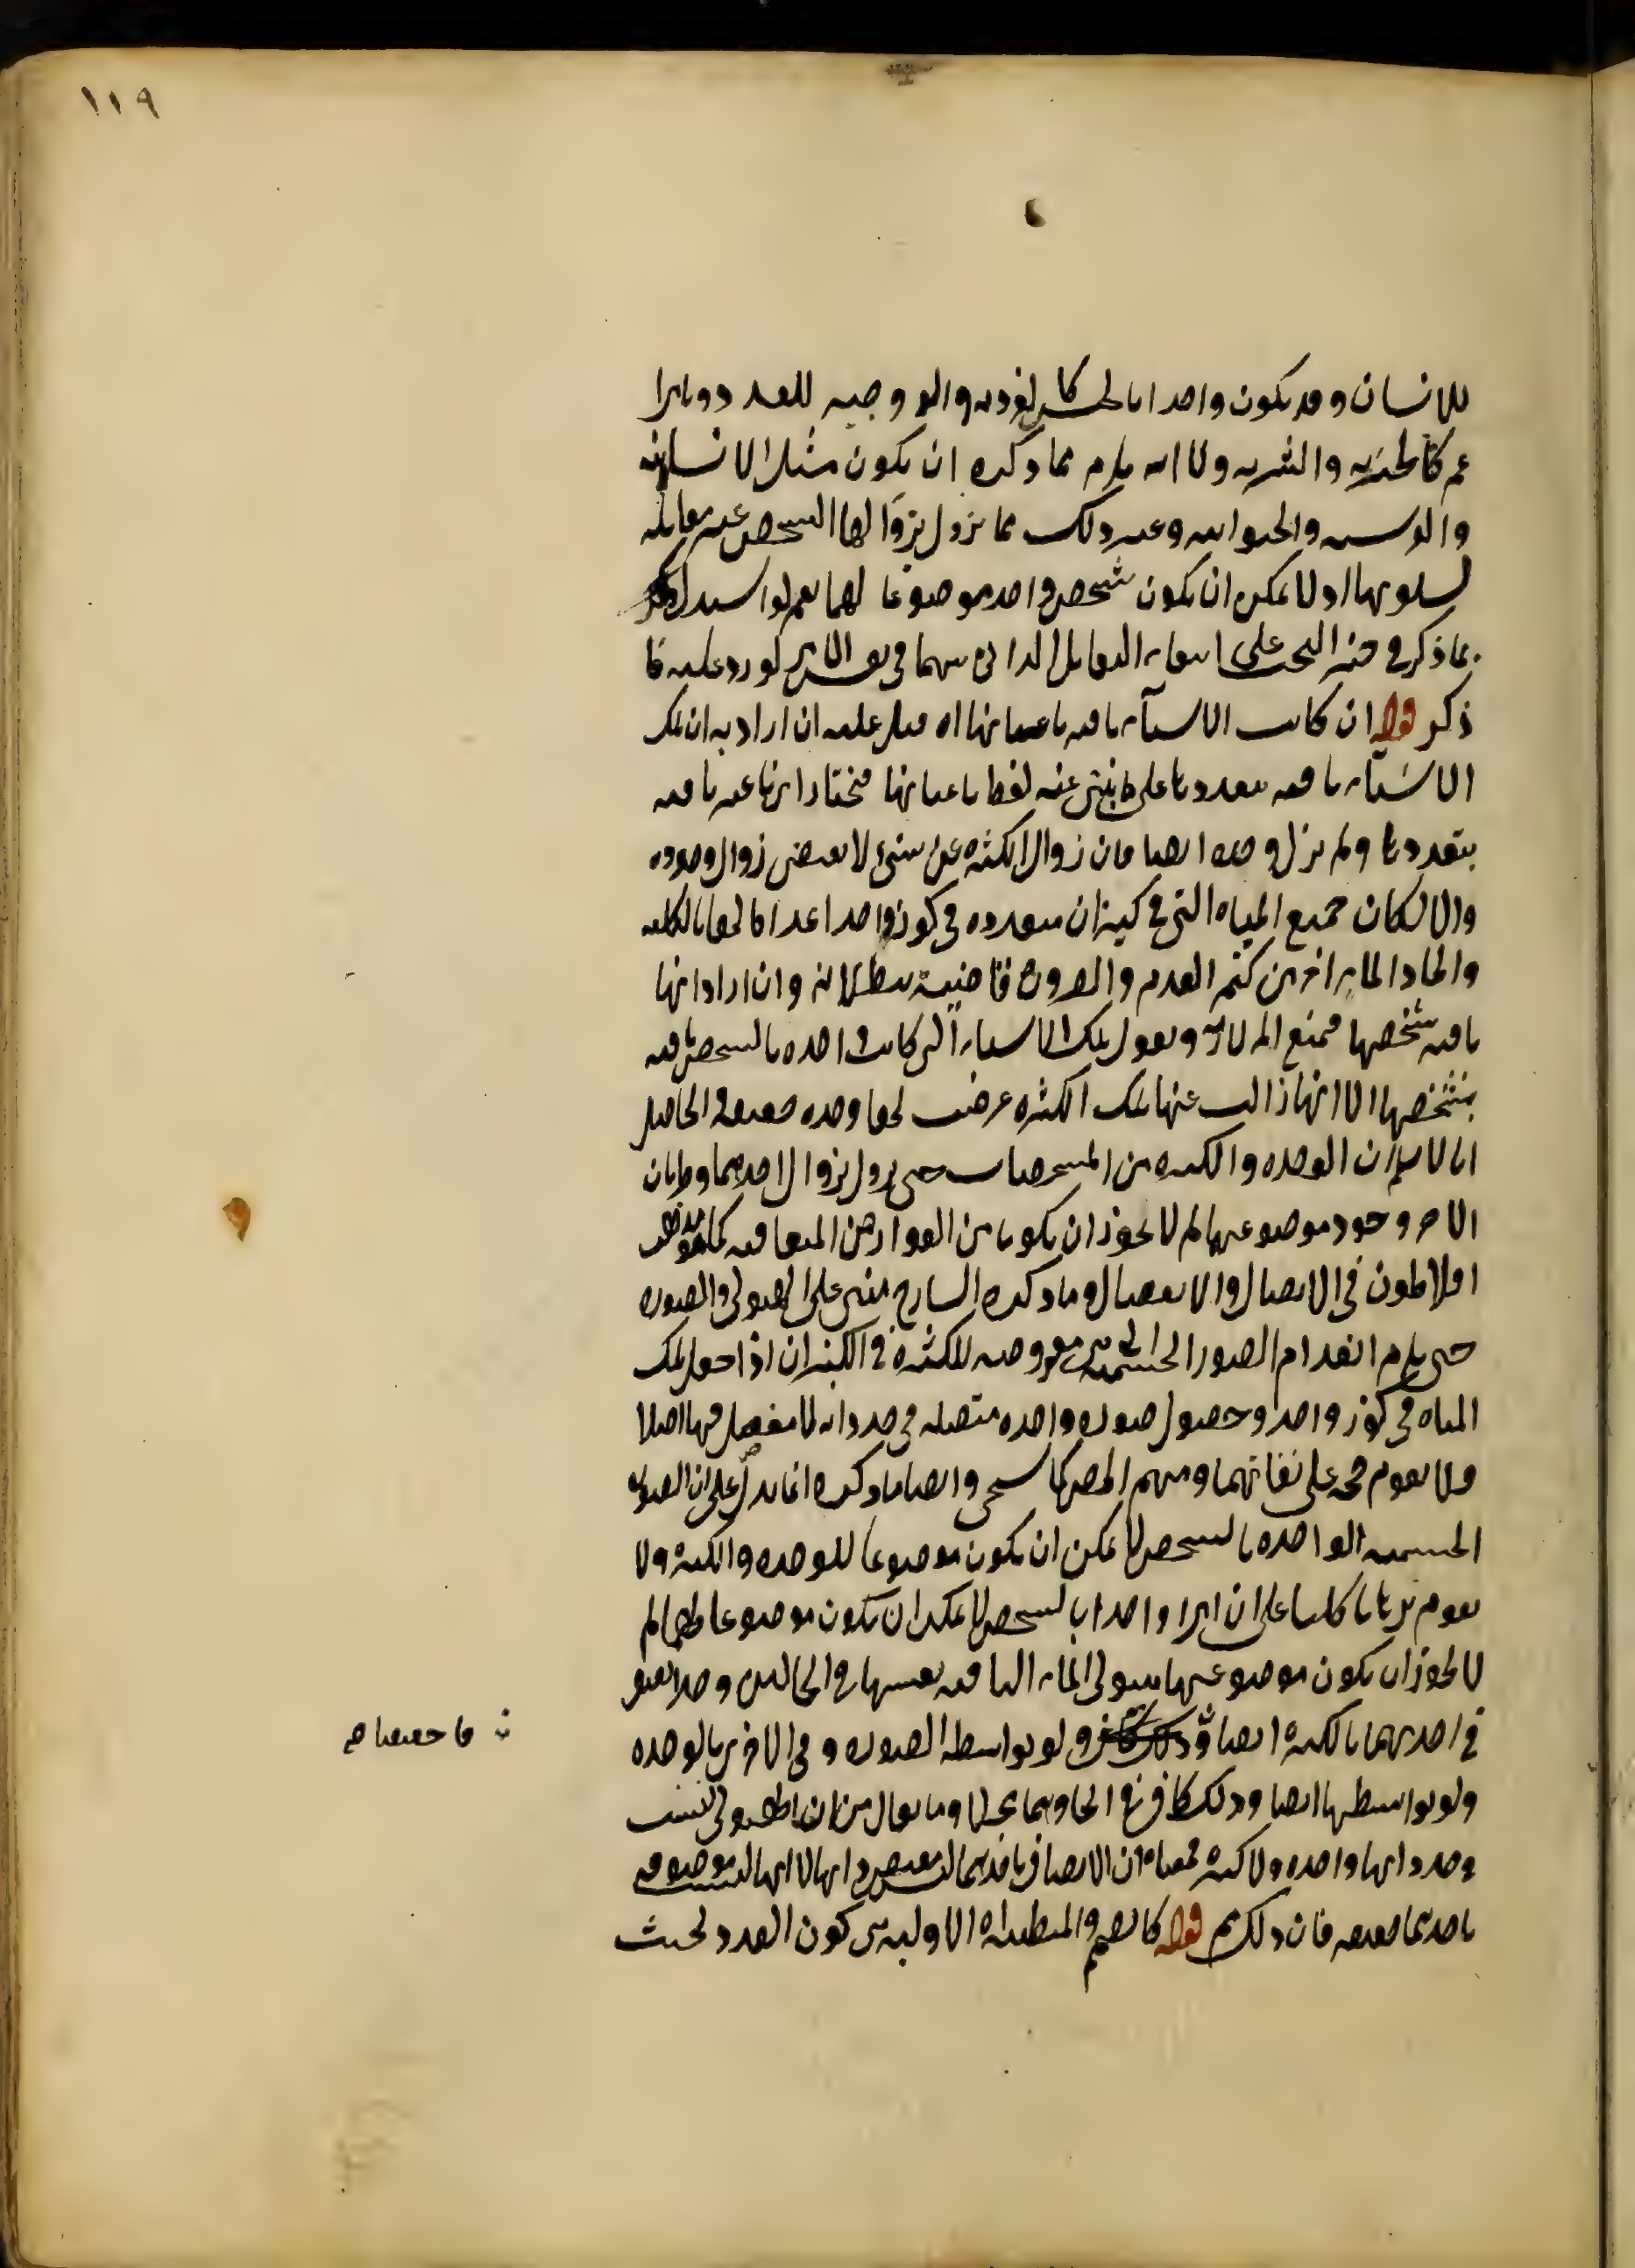 ١١٩
للانسان وقد يكون واحدا بالجنس كالفرديه والزوجيه للعدد دوامرا
عم كالخيريه والشريه ولا انه يلزم مما ذكره ان يكون مثل الانسانيه
والفرسيه والحيوانيه وغير ذلك مما يزول بزوالها الشخص غير مقابله
لسلوبها اذ لا يمكن ان يكون شخص واحد موضوعا لهما نعم لو استدل
بما ذكر في هذا البحث على انتفاء التقابل الذاتي بينهما في لورد عليه ما
ذكر قوله ان كانت الاشياء باقيه باعيانها اه قيل عليه ان اراد به ان تلك
الاشياء باقيه بتعددها على ما ينبئ عنه لفظ باعيانها فنختار انها غير باقيه
بتعددها ولم يزل وجوده ايضا فان زوال الكثره عن شئ لا يقتضى زوال وجوده
والا لكان جمع المياه التى في كيزان متعدده في كوز واحد اعداما لها بالكليه
وايجادا لماء اخر من كتم العدم والضروره قاضية ببطلانه وان اراد انها
باقيه بتشخصها فنمنع الملازمه ونقول تلك الاشياء التى كانت واحده بالشخص باقيه
بتشخصها الا انها زالت عنها تلك الكثره وعرضت لها وحده حقيقه والحاصل
انا لا نسلم ان الوحده والكثره من المشخصات حتى يزول بزوال احديهما وطريان
الاخر وجود موضوعيهما لم لا يجوز ان يكونا من العوارض المتعاقبه كما هو مذهب
افلاطون في الاتصال والانفصال وما ذكره الشارح مبنى على الهيولى والصوره
حتى يلزم انعدام الصور الجسميه التى هى معروضه للكثره في الكيزان اذا جعل تلك
المياه في كوز واحد وحصول صوره واحده متصله في حد ذاته لا مفصل فيها اصلا
ولا يقوم حجه على نفاتهما ومنهم المص كما سيجى وايضا ما ذكره انما يدل على ان الصوره
الجسميه الواحده بالشخص لا يمكن ان يكون موضوعا للوحده والكثره ولا
يقوم برهانا كليا على ان امرا واحدا بالشخص لا يمكن ان يكون موضوعا لهما لم
لا يجوز ان يكون موضوعهما هيولى الماء الباقيه بعينها في الحالين
في احديهما بالكثره ايضا ولو بواسطه الصوره وفي الاخرى بالوحده
ولو بواسطتها ايضا وذلك كاف في اتحادهما محلا وما يقال من ان الهيولى ليست
في حد ذاتها واحده ولا كثيره فمعناه ان الاتصاف باحديهما ليس مقتضى ذاتها لا انها ليست موصوفه
باحديهما حقيقه فان ذلك مم قوله كالصمم والمنطقيه والاوليه هى كون العدد بحيث